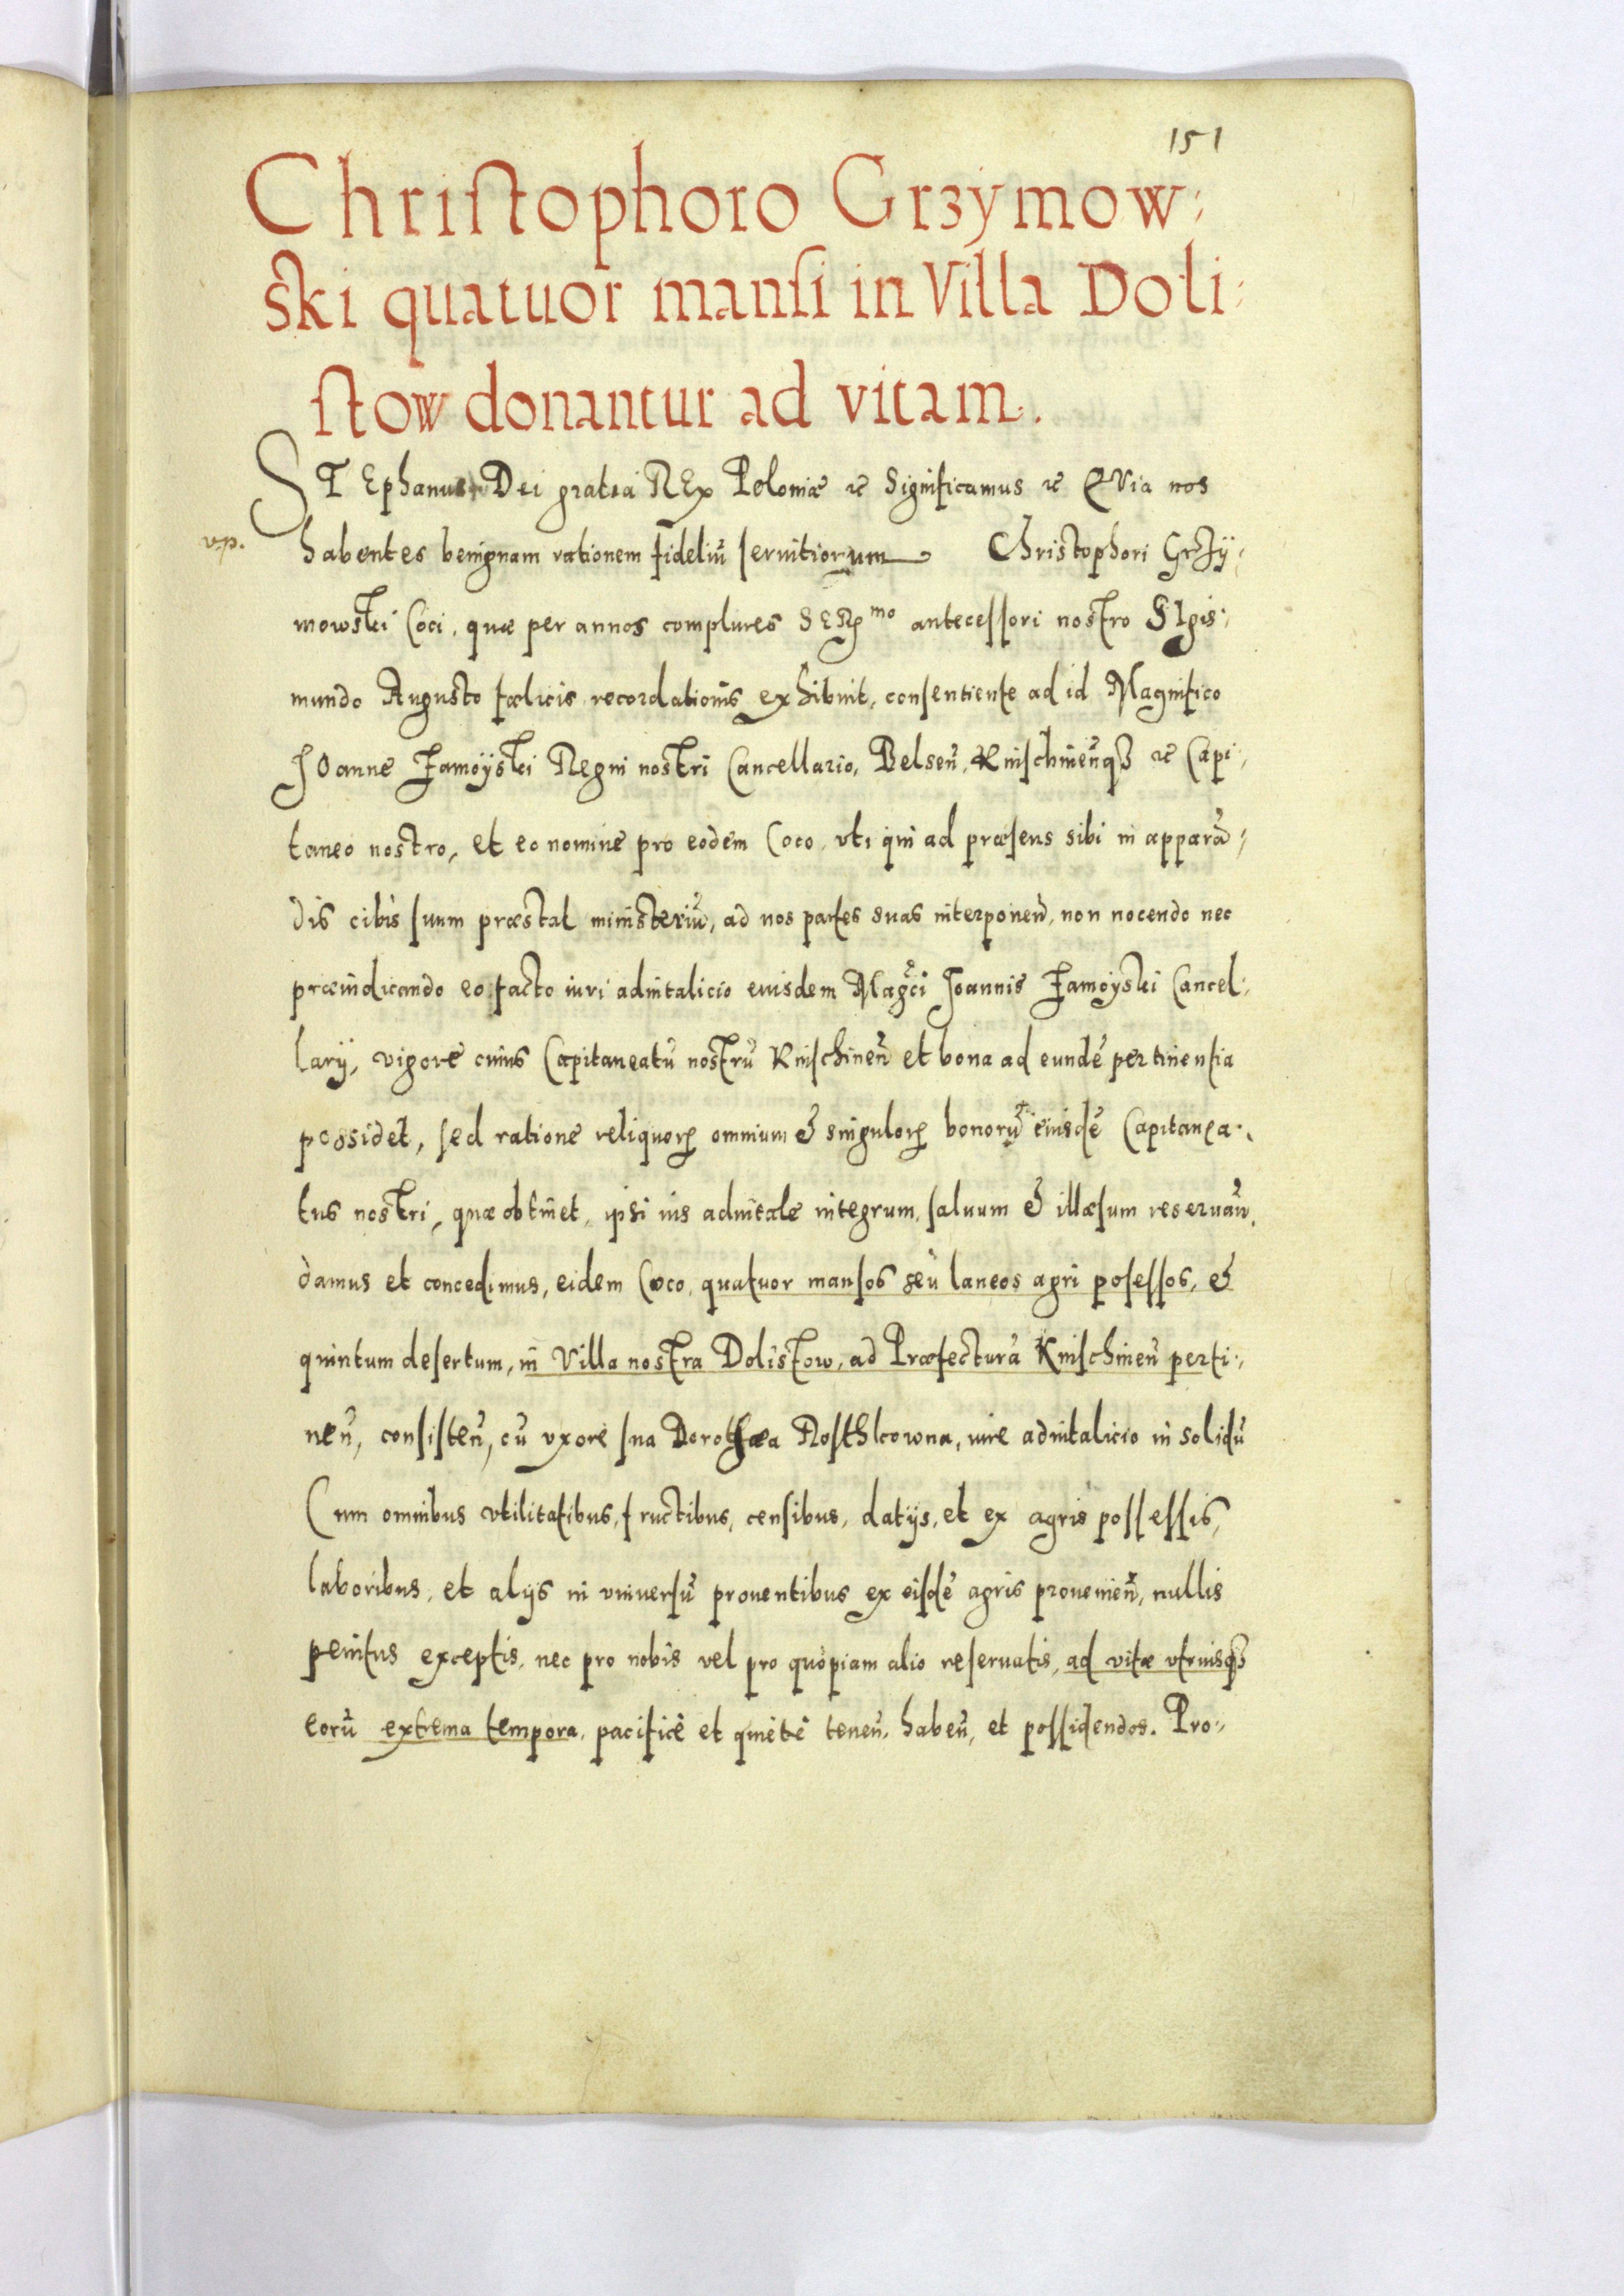 151
Christophoro Grzymow:
ski quatuor mansi in Villa Doli:
stow donantur ad vitam.
STEphanus Dei gratia REx Poloniæ etc Significamus etc QVia nos
v.p.
habentes benignam rationem fideliũ seruitiorum Christophori Grzÿ:
mowski Coci, quæ per annos complures SERmo antecessori nostro SIgis:
mundo Augusto fœlicis recordationis exhibuit, consentiente ad id Magnifico
JOanne Zamoÿski Regni nostri Cancellario, Belseñ, Knischineñqз etc Capi:
taneo nostro, et eo nomine pro eodem Coco, vti qui ad præsens sibi in apparã:
dis cibis suum præstat ministeriũ, ad nos partes suas interponeñ, non nocendo nec
præiudicando eo facto iuri aduitalicio euisdem Magci Joannis Zamoÿski Cancel:
larÿ, vigore cuius Capitaneatũ nostrũ Knischineñ et bona ad eundẽ pertinentia
possidet, sed ratione reliquorꝝ omnium et singulorꝝ bonorũ eiusdẽ Capitanea:
tus nostri, quæ obtinet, ipsi ius aduitale integrum, saluum et illæsum reseruañ,
damus et concedimus, eidem Coco, quatuor mansos seu laneos agri posessos, et
quintum desertum, in Villa nostra Dolistow, ad Præfecturã Knischineñ perti:
neñ, consisteñ, cũ vxore sua Dorothæa Rosthkowna, iure aduitalicio in solidũ
Cum omnibus vtilitatibus, fructibus, censibus, datÿs, et ex agris possessis,
laboribus, et alÿs in vniuersũ prouentibus ex eisdẽ agris prouenieñ, nullis
penitus exceptis, nec pro nobis vel pro quopiam alio reseruatis, ad vitæ vtriusqз
eorũ extrema tempora, pacificè et quietè teneñ, habeñ, et possidendos. Pro: